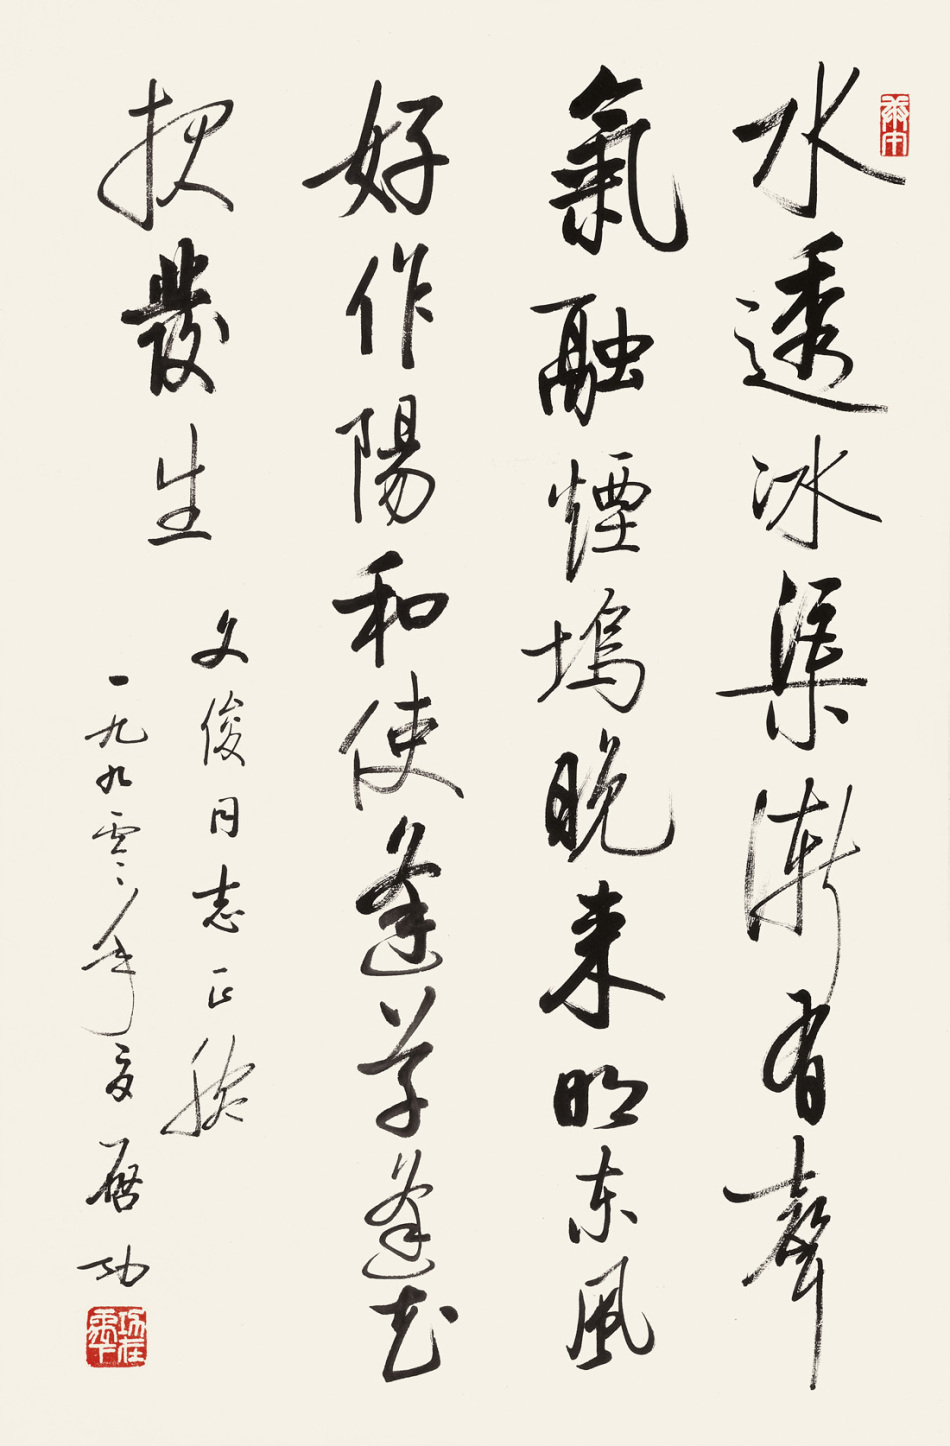 水透冰渠漸有聲
氣融煙塢晚来明东風
好作陽和使逢草逢花
报發生
文俊同志正腕
一九九零年夏 启功